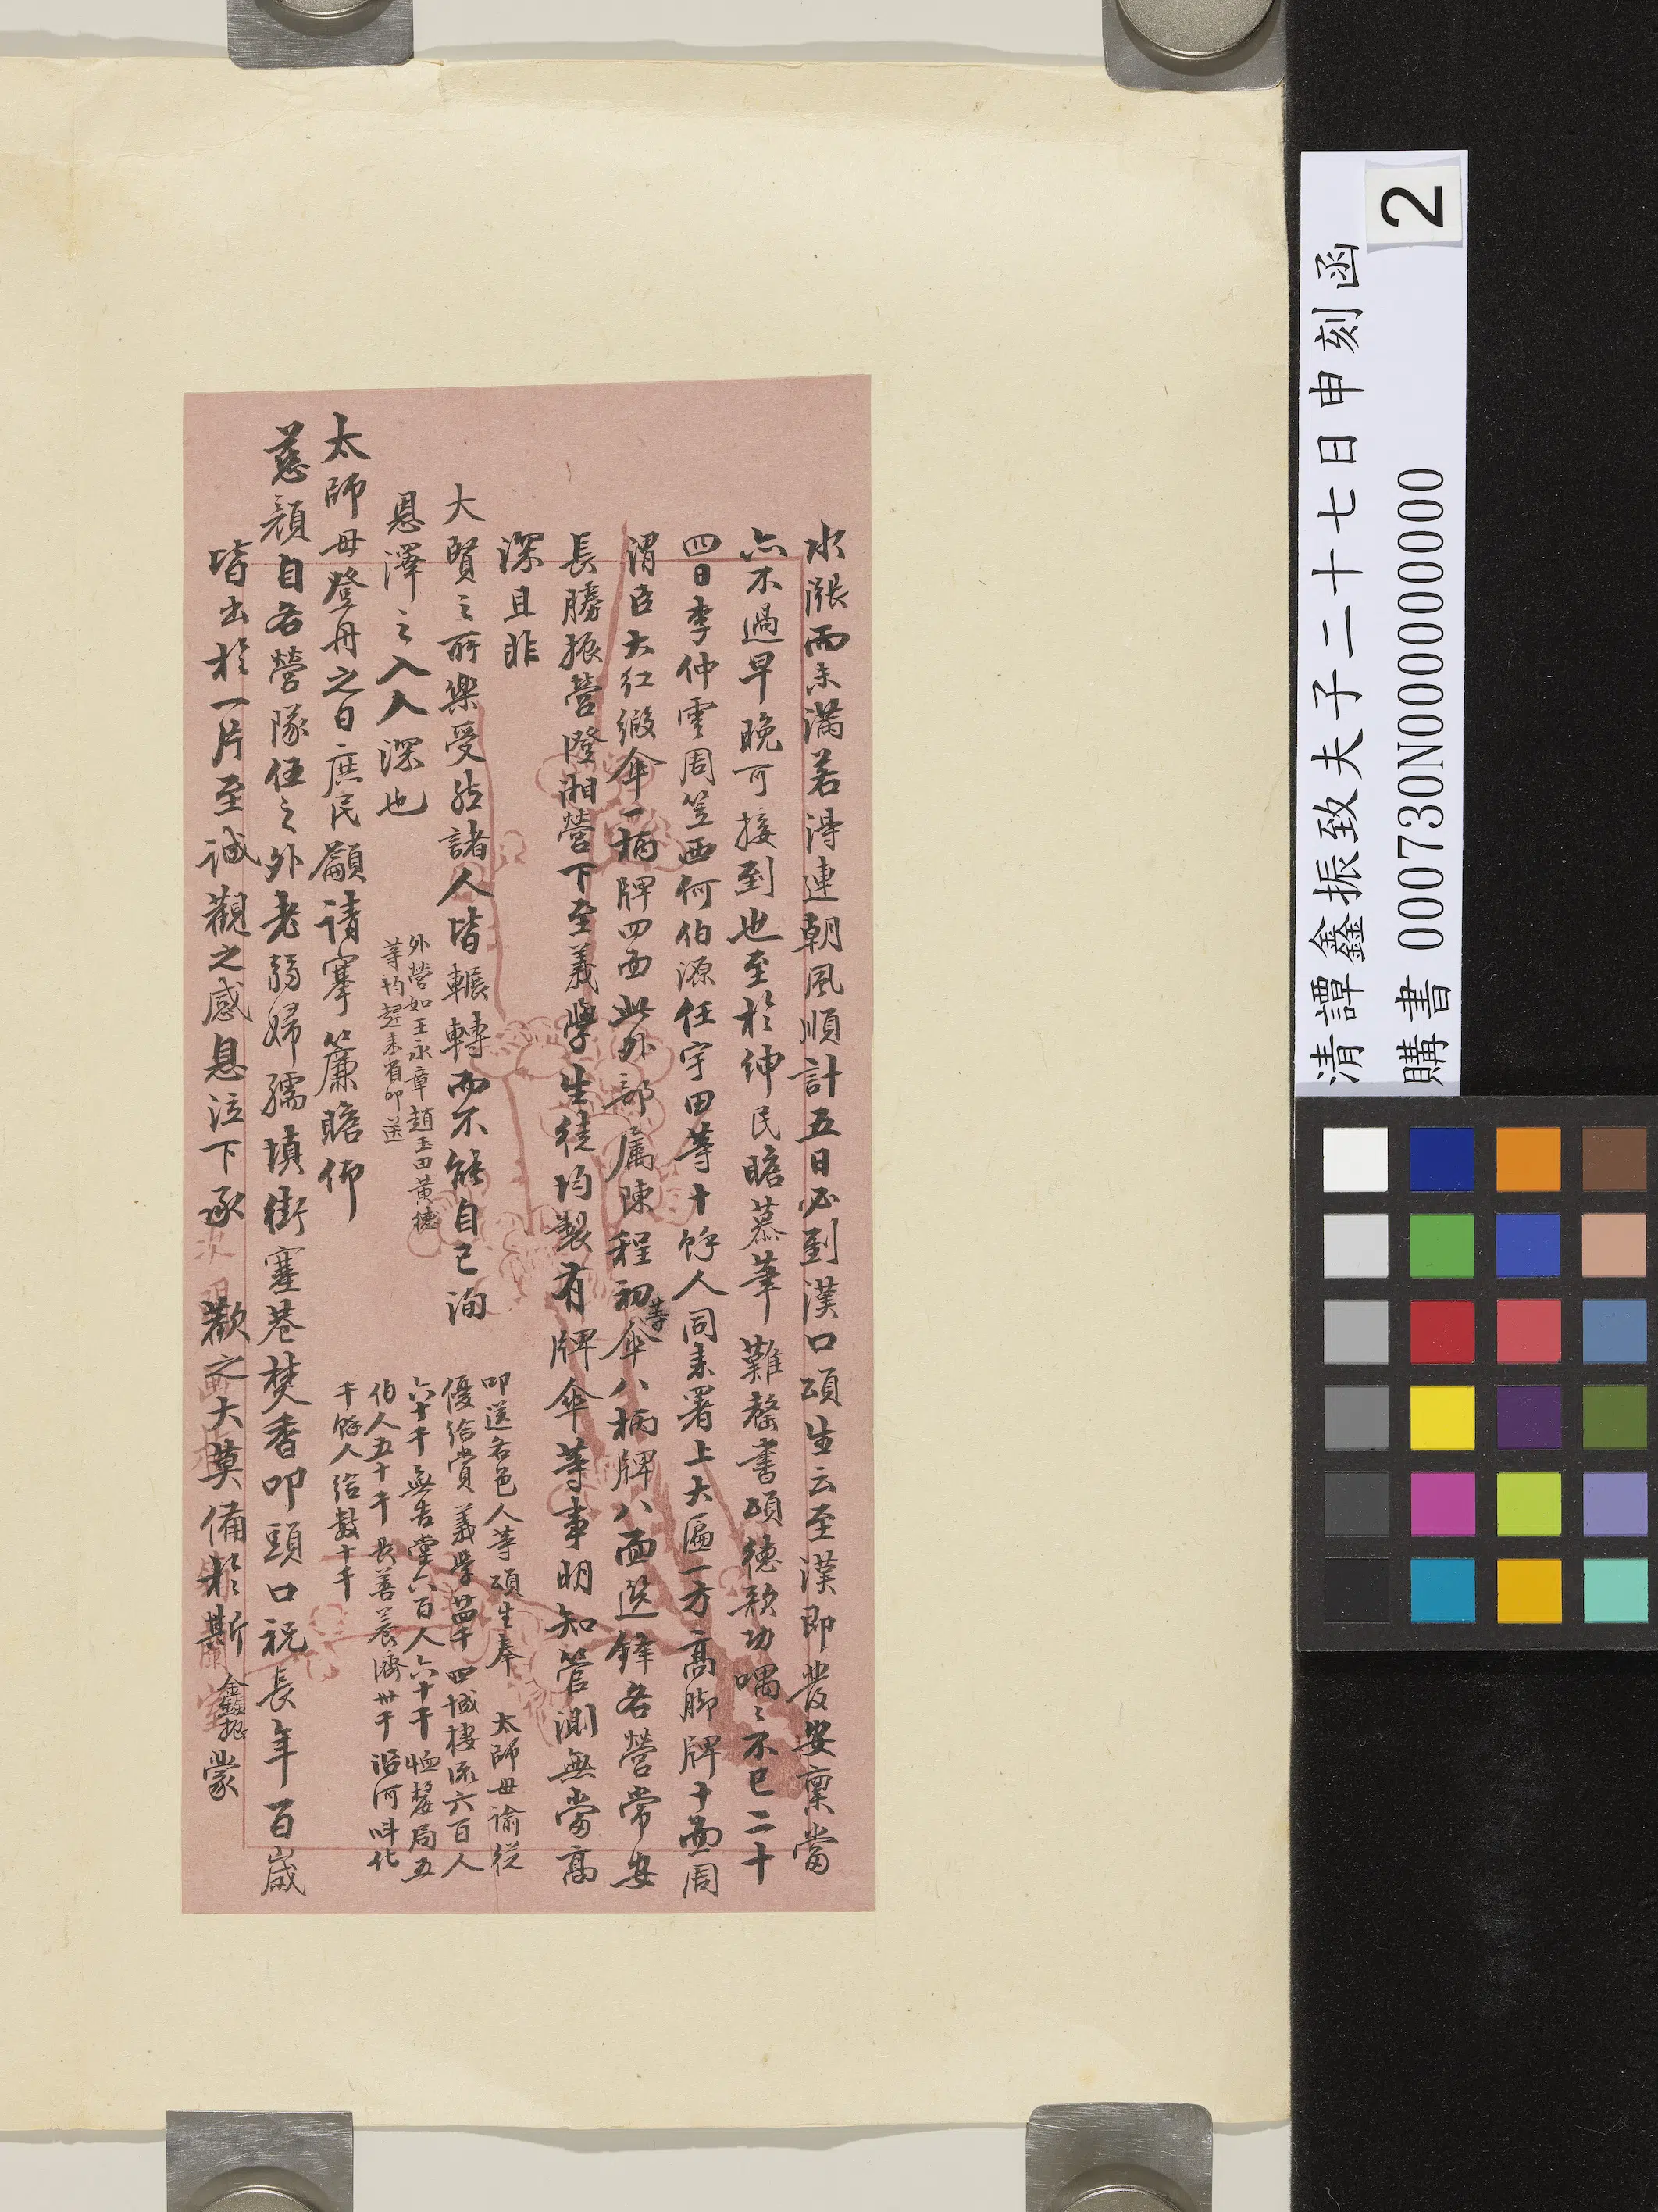 水漲而未滿若得連朝風順計五日必到漢口頌生云至漢即發安稟當
亦不過早晚可接到也至於紳民瞻慕筆難罄書頌德歌功喁〻不已二十
四日李仲雲周笠西何伯源任宇田等十餘人同來署上大匾一方高腳牌十面周
渭臣大紅緞傘一柄牌四面此外部屬陳程初等傘八柄牌八面選鋒各營常安
長勝振營澄湘營下至義學生徒均製有牌傘等事明知管測無當高
深且非
大賢之所樂受訪諸人皆輾轉而不能自已洵
恩澤之入人深也
外營如王永章趙玉田黃德
等均趕來省叩送
叩送各色人等頌生奉 太師母諭從
優給賞 義學百千 四城棲流六百人
六十千 無告堂六百人六十千 恤嫠局五
伯人五十千 長善養濟卅千 沿河叫化
千餘人給數十千
太師母登舟之日庶民籲請搴簾瞻仰
慈顏自各營隊伍之外老弱婦孺填街塞巷焚香叩頭口祝長年百歲
皆出於一片至誠觀之感息泣下承 歡之大莫備於斯鑫振蒙
清譚鑫振致夫子二十七日申刻函
購書 000730N000000000
2